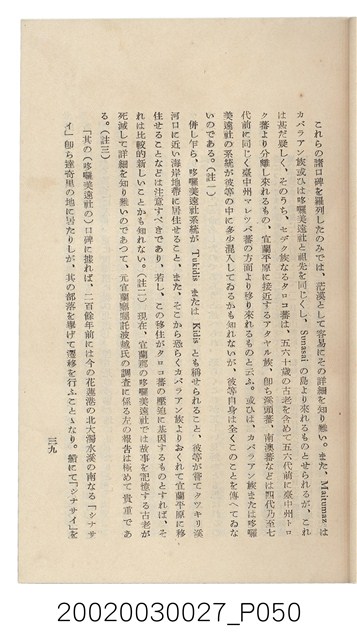 これらの諸口碑を羅列したのみでは、茫漠として容易にその詳細を知り難い。また、Maitumazは
カバラアン族或ひは哆囉美遠社と祖先を同じくし、Sunasaiの島より來れるものとせられるが、これ
は甚だ疑しく、そのうち、セデク族なるタロコ蕃は、五六十歳の古老を含めて五六代前に臺中州トロ
ク蕃より分離し來れるもの、宜蘭平原に接近するアタヤル族、卽ち溪頭蕃、南澳蕃などは四代乃至七
代前に同じく臺中州マレツパ蕃の方面より移り來れるものと云ふ。或ひは、カバラアン族または哆囉
美遠社の系統が彼等の中に多少混入してゐるかも知れないが、彼等自身は全くこのことを傳へてゐな
いのである。（註一）
併し乍ら、哆囉美遠社系統が、TukidisまたはKidisとも稱せられること、彼等が嘗てタツキリ溪
河口に近い海岸地帶に居住せること、また、そこから恐らくカバラアン族よりおくれて宜蘭平原に移
住せることなどは注意すべきであり、若し、この移住がタロコ蕃の壓迫に基因するものとすれば、そ
れは比較的新しいことかも知れない。（註二）現在、宜蘭郡の哆囉美遠社では故事を記憶する古老が
死滅して詳細を知り難いのであつて、元宜蘭廳囑託波越氏の調査に係る左の報告は極めて貴重であ
る。（註三）
「其の（哆囉美遠社の）口碑に據れば、二百餘年前には今の花蓮港の北大濁水溪の南なる「シナサ
イ」卽ち達奇里の地に居たりしが、其の部落を擧げて遷移を行ふことゝなり。籲にて「シナサイ」を
三九
20020030027_P050